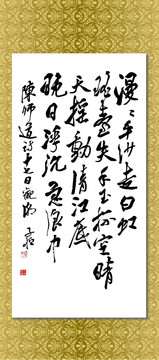 漫〻平沙走白虹
瑶臺失手玉杯空晴
天摇動清江底
晚日浮沉急浪中
陳師道詩十七日觀潮